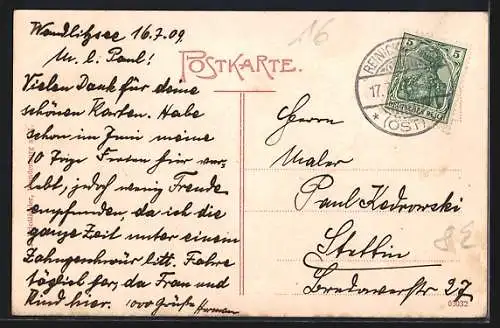 Wandlitzsee 16.7.09.
M. l. Paul!
Vielen Dank für deine
schönen Karten. Habe
schon im Juni meine
10 Tage Ferien hier ver-
lebt, jedoch wenig Freude
empfunden, da ich die
ganze Zeit unter einem
Zahngeschwür litt. Fahre
täglich her, da Frau und
Kind hier. 1000 Grüße Herman
16
POSTKARTE.
REINICK
17.7
* (OST)
5 5
DEUTSCHES REICH
Herrn
Maler
Paul Kodrowski
Stettin
Bredowerstr 27
03032